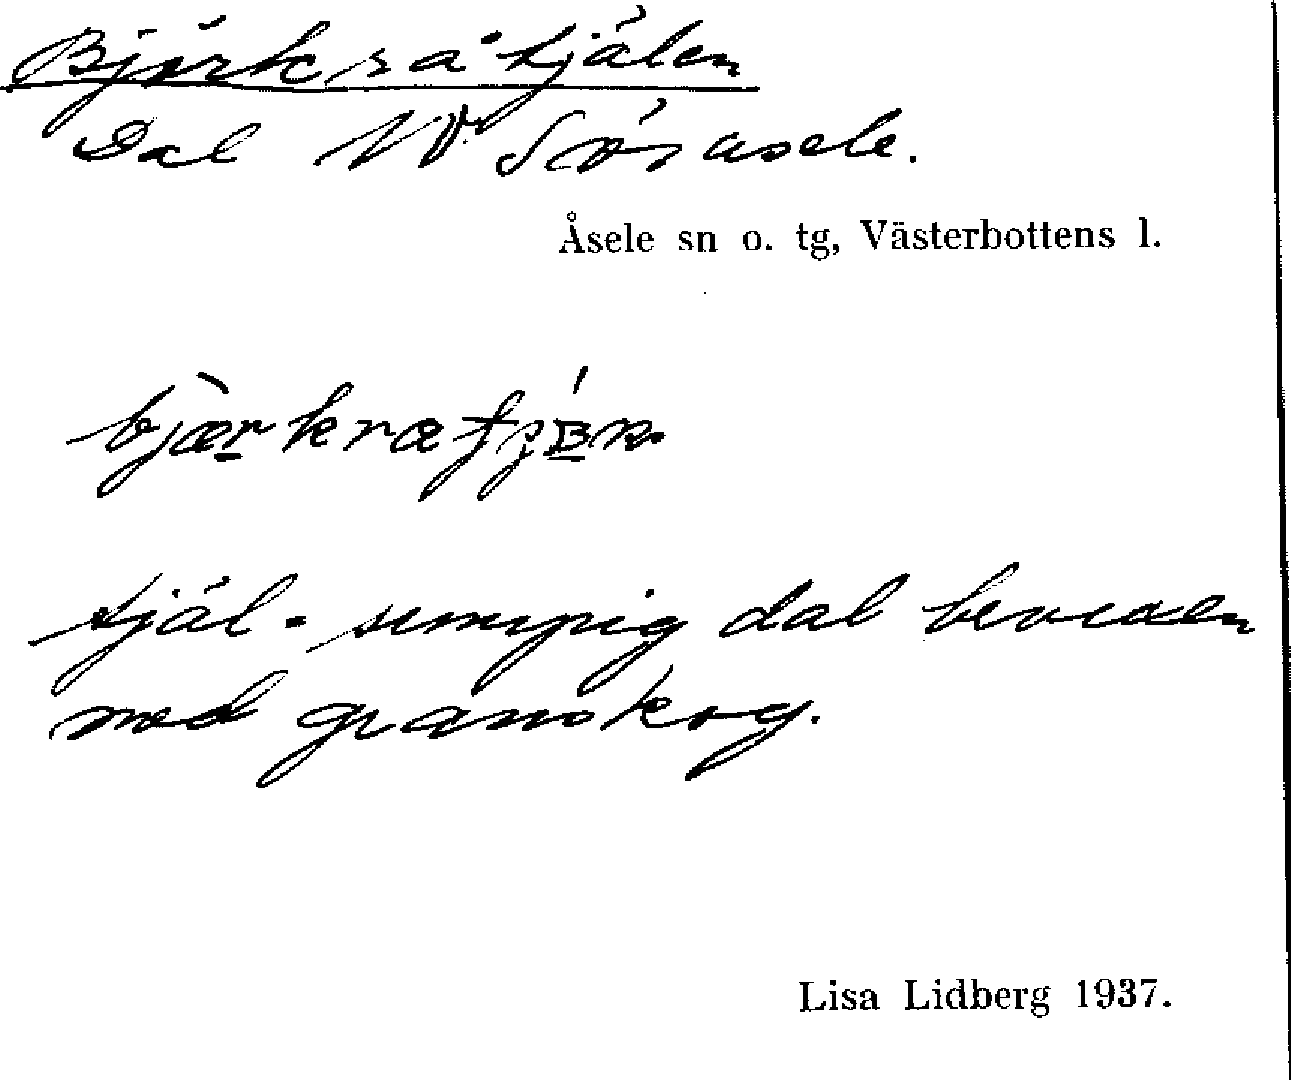 Björkråtjälen
Dal NV Söråsele.
Åsele sn o. tg, Västerbottens l.
tjäl = sumpig dal bevuxen
med granskog.
Lisa Lidberg 1937.